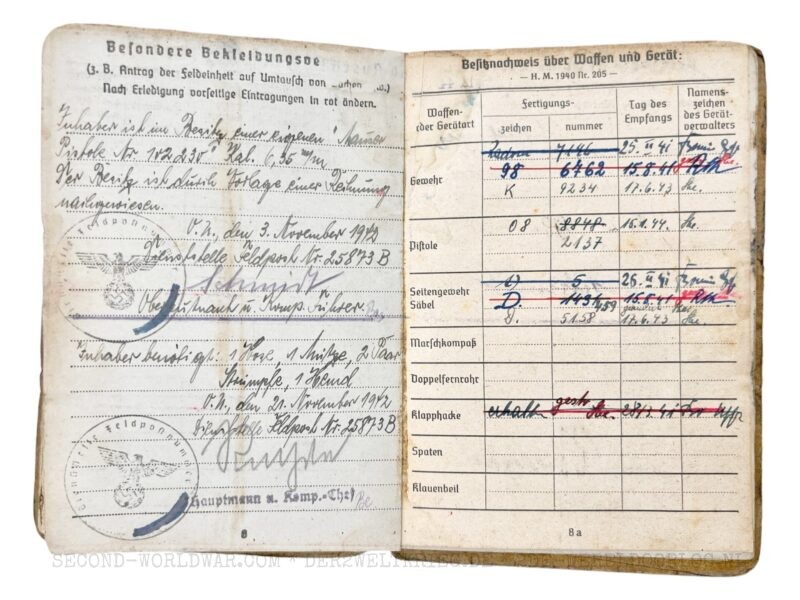 Besondere Bekleidungsve
(z. B. Antrag der Feldeinheit auf Umtausch von
Nach Erledigung vorseitige Eintragungen in rot ändern.
Inhaber ist im Besitz einer eigenen "Mauser
Pistole Nr 182.230" Kal. 6,35 m/m
Der Besitz ist durch Vorlage einer
nachgewiesen.
O.U., den 3. November 1942
Dienststelle Feldpost Nr. 25873 B
Schmidt
Oberleutnant u. Komp. Führer
Inhaber benötigt: 1 Hose, 1 Mütze, 2 Paar
Strümpfe, 1 Hemd
O.U., den 21. November 1942
Dienststelle Feldpost Nr. 25873 B
Hauptmann u. Komp.-Chef
8
Besitznachweis über Waffen und Gerät:
— H. M. 1940 Nr. 205 —
Waffen- oder Gerätart
Fertigungs-
zeichen nummer
Tag des Empfangs
Namens- zeichen des Gerät- verwalters
Gewehr 7146 25. II 41
98 6762 15.8.41
K 9234 17.6.43
Pistole 08 8848 15.1.44.
2137
Seitengewehr Säbel 5 26. II 41
D. 15.8.41
5158 17.6.43
Marschkompaß
Doppelfernrohr
Klapphacke erhalt.
Spaten
Klauenbeil
8a
SECOND-WORLDWAR.COM